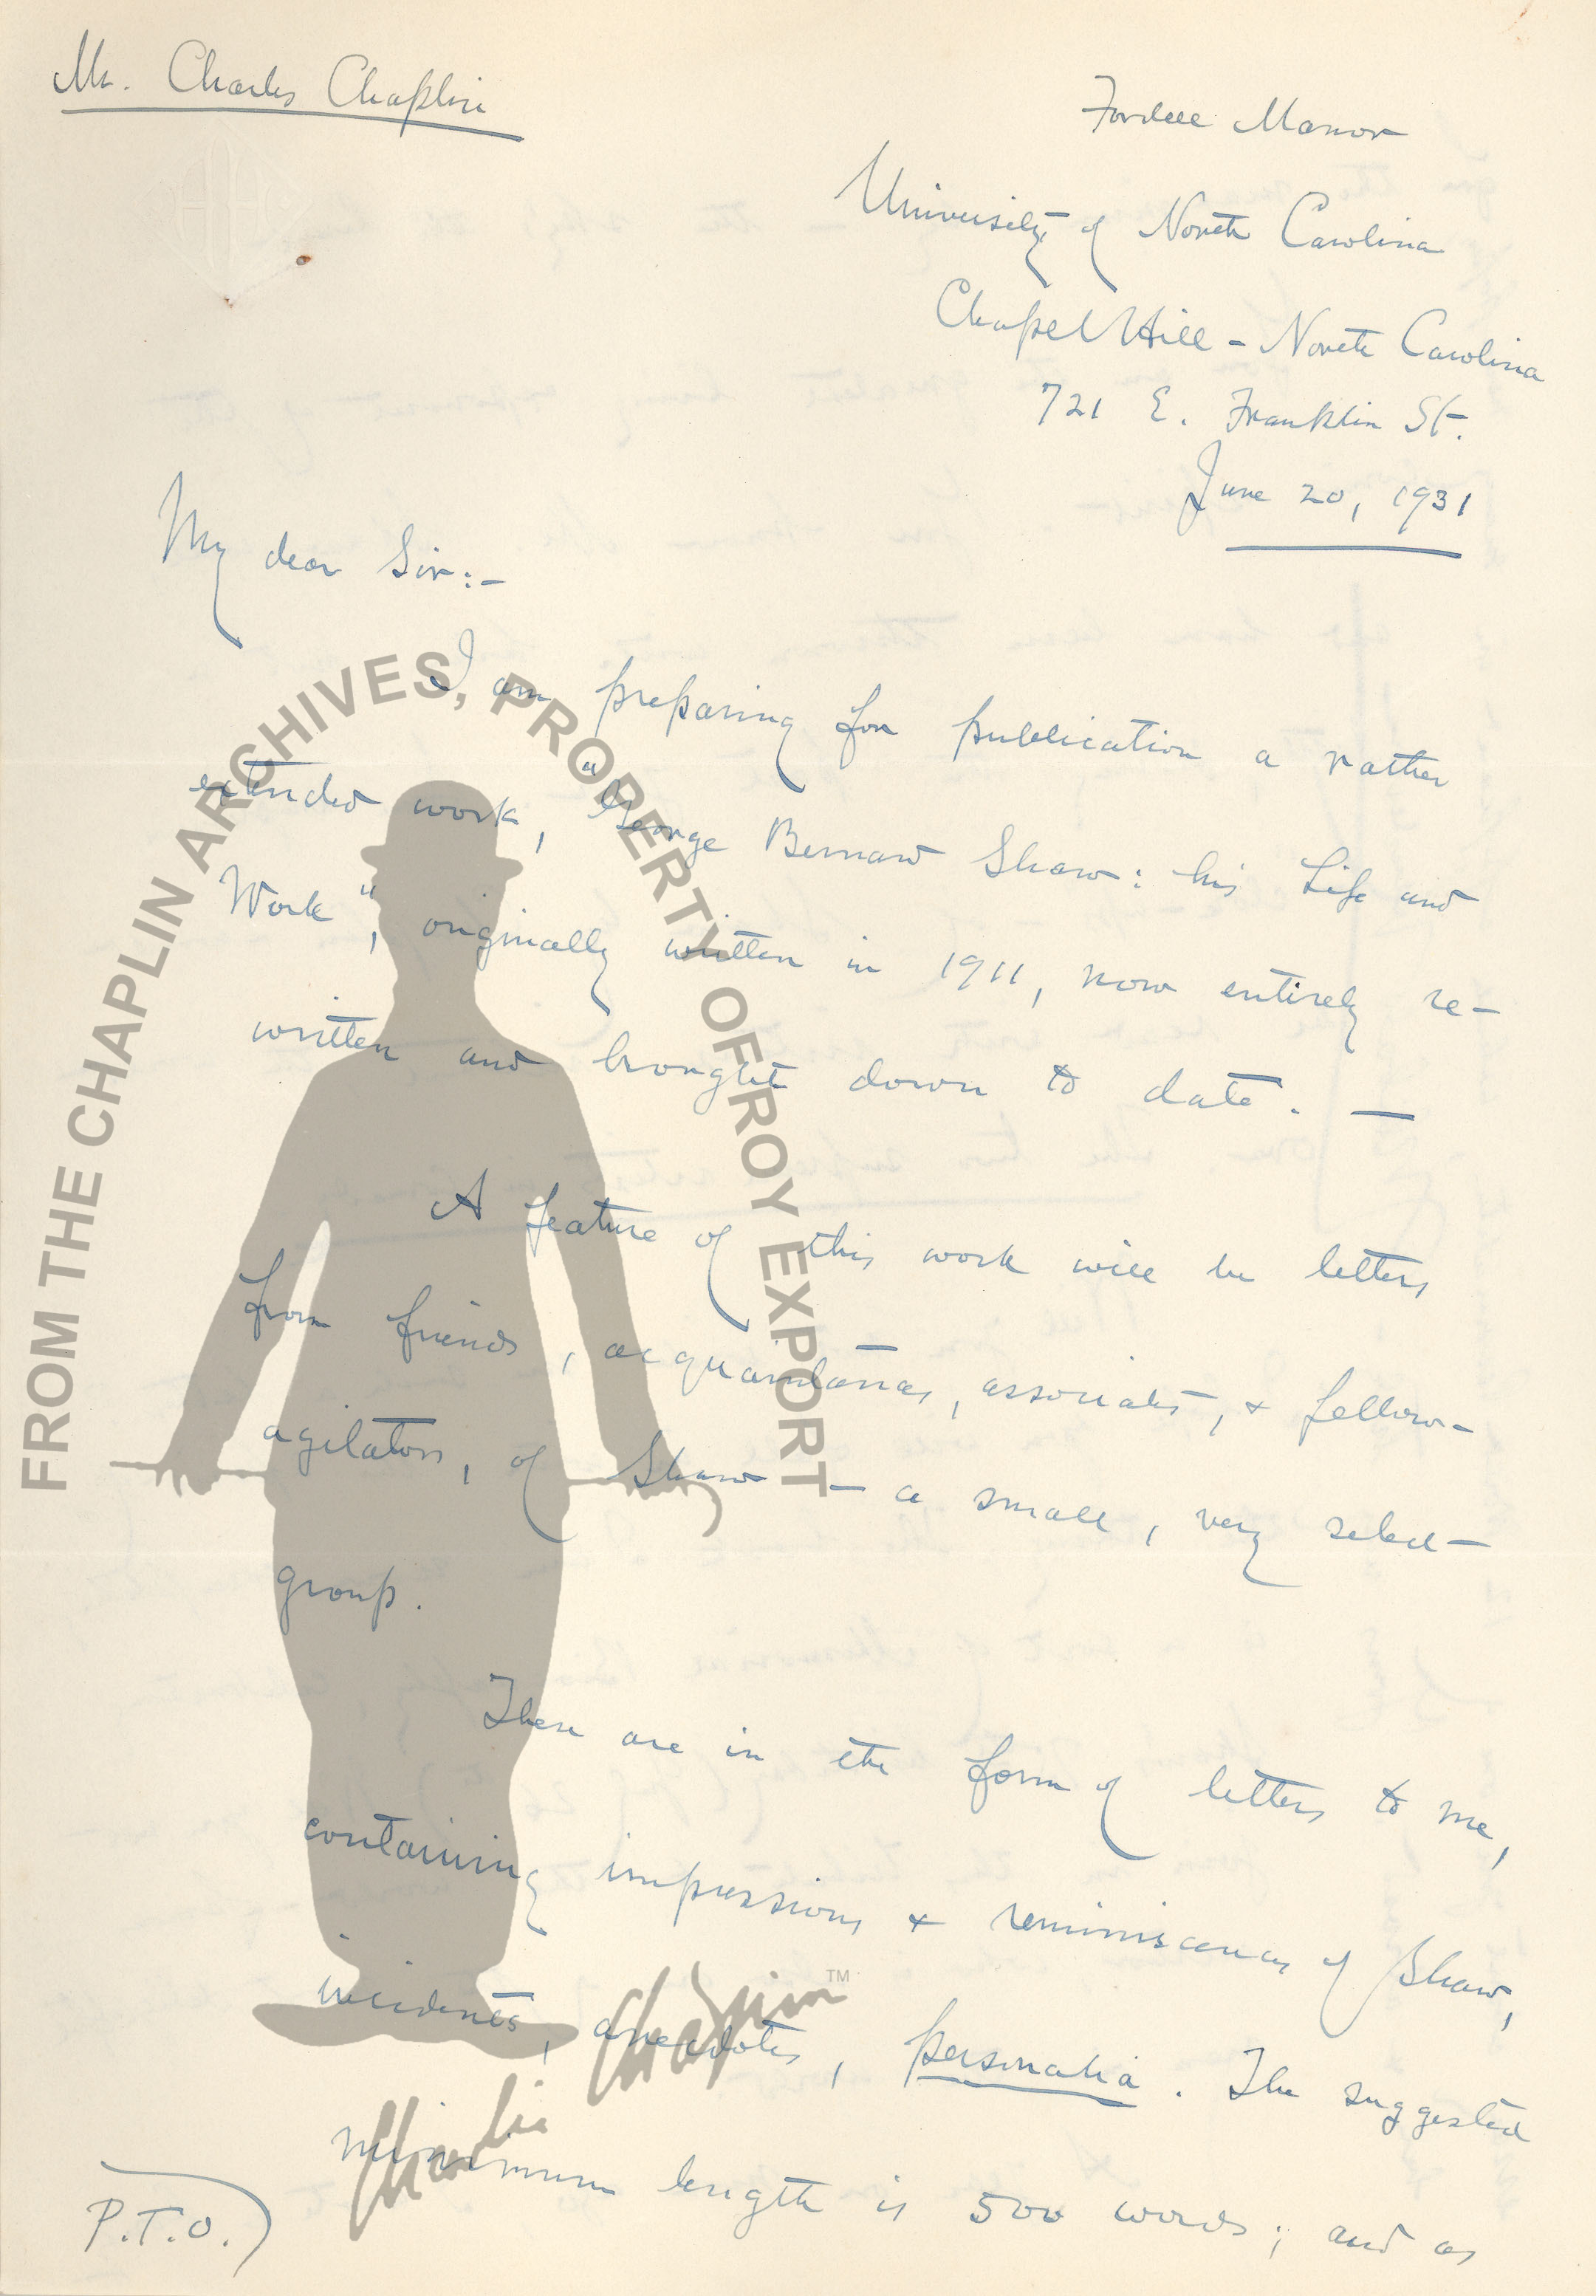 Mr. Charles Chaplin
Fordell Manor
University of North Carolina
Chapel Hill - North Carolina
721 E. Franklin St.
June 20, 1931
My dear Sir:-
I am preparing for publication a rather
extended work, "George Bernard Shaw: his Life and
Work", originally written in 1911, now entirely re-
written and brought down to date. —
A feature of this work will be letters
from friends, acquaintances, associates, & fellow-
agitators, of Shaw — a small, very select
group.
These are in the form of letters to me,
containing impressions & reminiscences of Shaw,
incidents, anecdotes, personalia. The suggested
minimum length is 500 words; and as
P.T.O.)
FROM THE CHAPLIN ARCHIVES, PROPERTY OF ROY EXPORT
Charlie Chaplin™